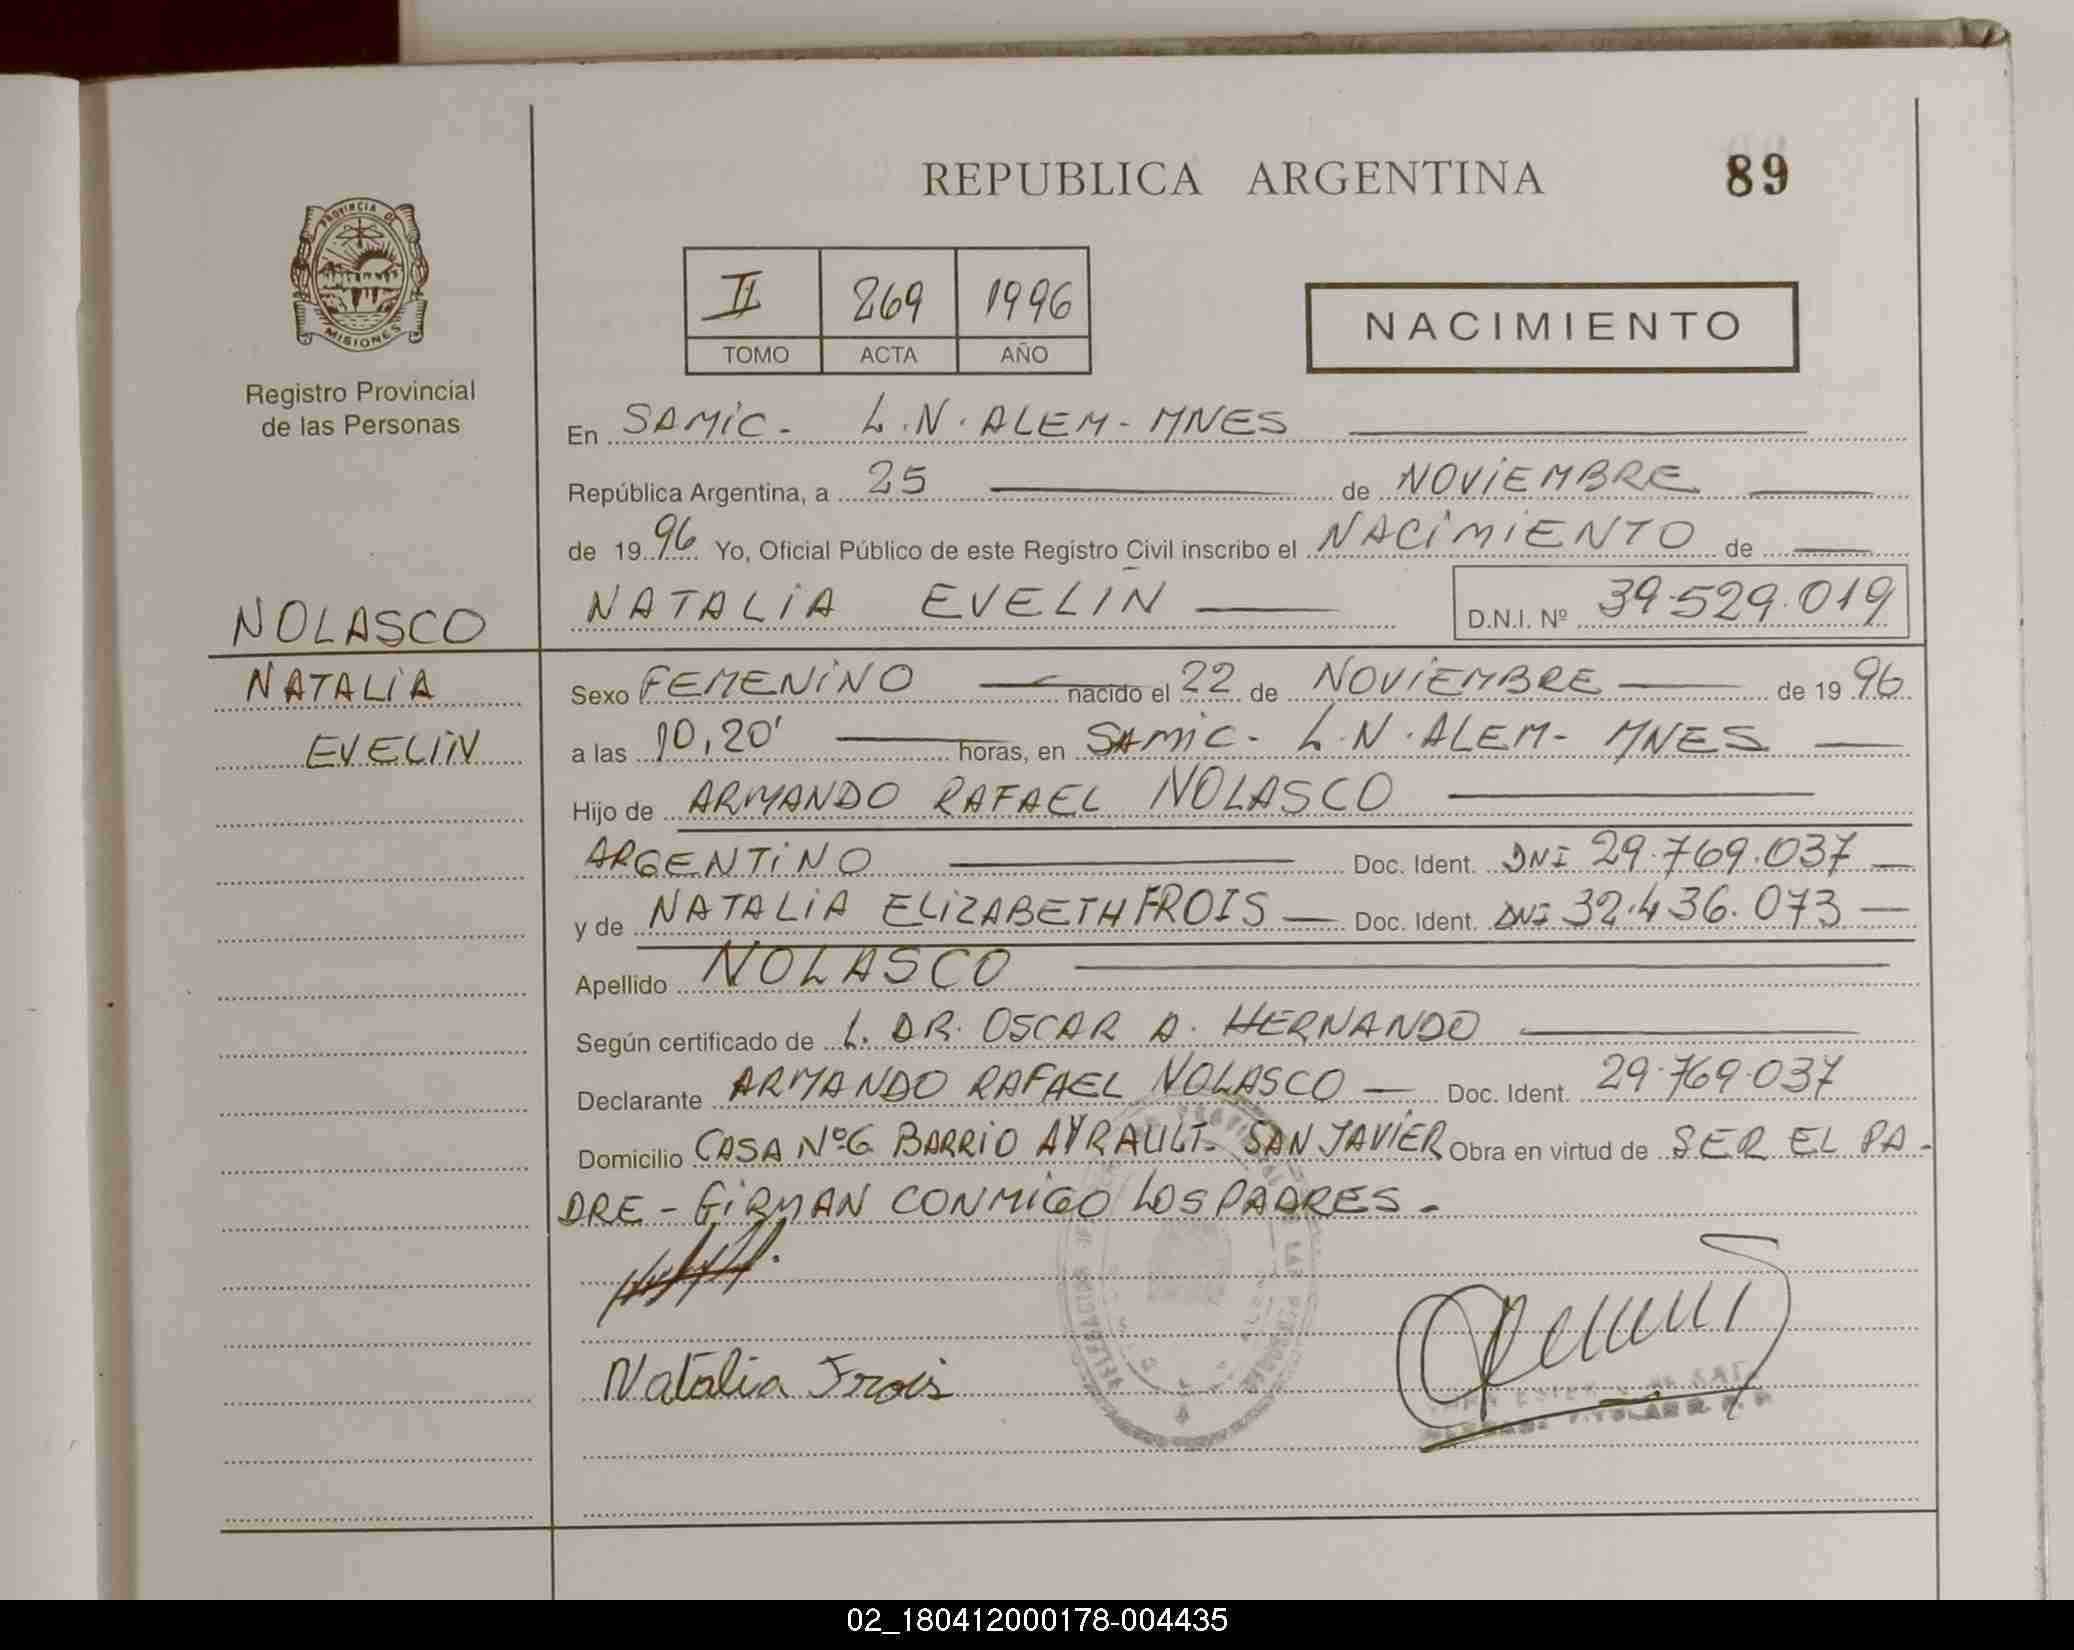 REPUBLICA ARGENTINA
89
PROVINCIA DE
MISIONES
Registro Provincial
de las Personas
II 269 1996
TOMO ACTA AÑO
NACIMIENTO
En SAMIC - L.N. ALEM - MNES
República Argentina, a 25 de NOVIEMBRE
de 1996 Yo, Oficial Público de este Registro Civil inscribo el NACIMIENTO de
NATALIA EVELIN D.N.I. Nº 39.529.019
NOLASCO
NATALIA
EVELIN
Sexo FEMENINO nacido el 22 de NOVIEMBRE de 1996
a las 10,20' horas, en SAMIC - L.N. ALEM - MNES
Hijo de ARMANDO RAFAEL NOLASCO
ARGENTINO Doc. Ident. DNI 29.769.037
y de NATALIA ELIZABETH FROIS Doc. Ident. DNI 32.436.073
Apellido NOLASCO
Según certificado de L. DR. OSCAR A. HERNANDO
Declarante ARMANDO RAFAEL NOLASCO Doc. Ident. 29.769.037
Domicilio CASA Nº6 BARRIO AYRAULT - SAN JAVIER Obra en virtud de SER EL PA-
DRE - FIRMAN CONMIGO LOS PADRES -
Natalia Frois
02_180412000178-004435